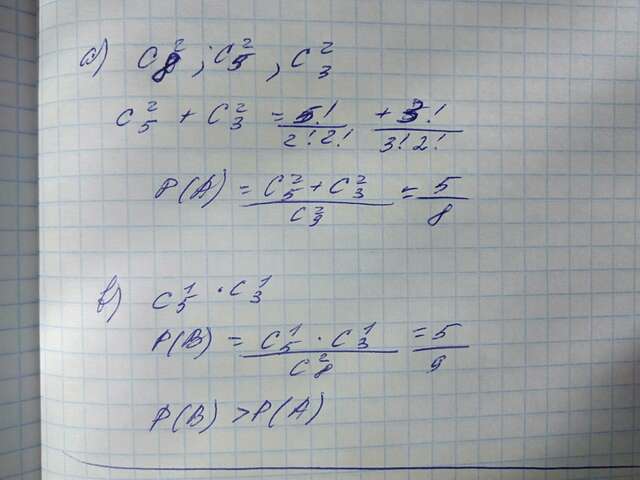 a) C₈² ; C₅² , C₃²
C₅² + C₃² = 5!/2!2! + 3!/3!2!
P(A) = C₅² + C₃²/C₉² = 5/8
b) C₅¹ · C₃¹
P(B) = C₅¹ · C₃¹/C₈² = 5/9
P(B) > P(A)